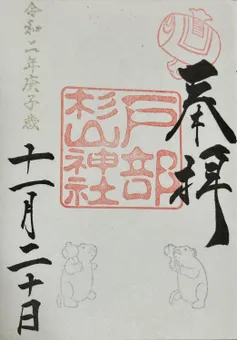 奉拝
戸部
杉山神社
令和二年庚子歳
十一月二十日